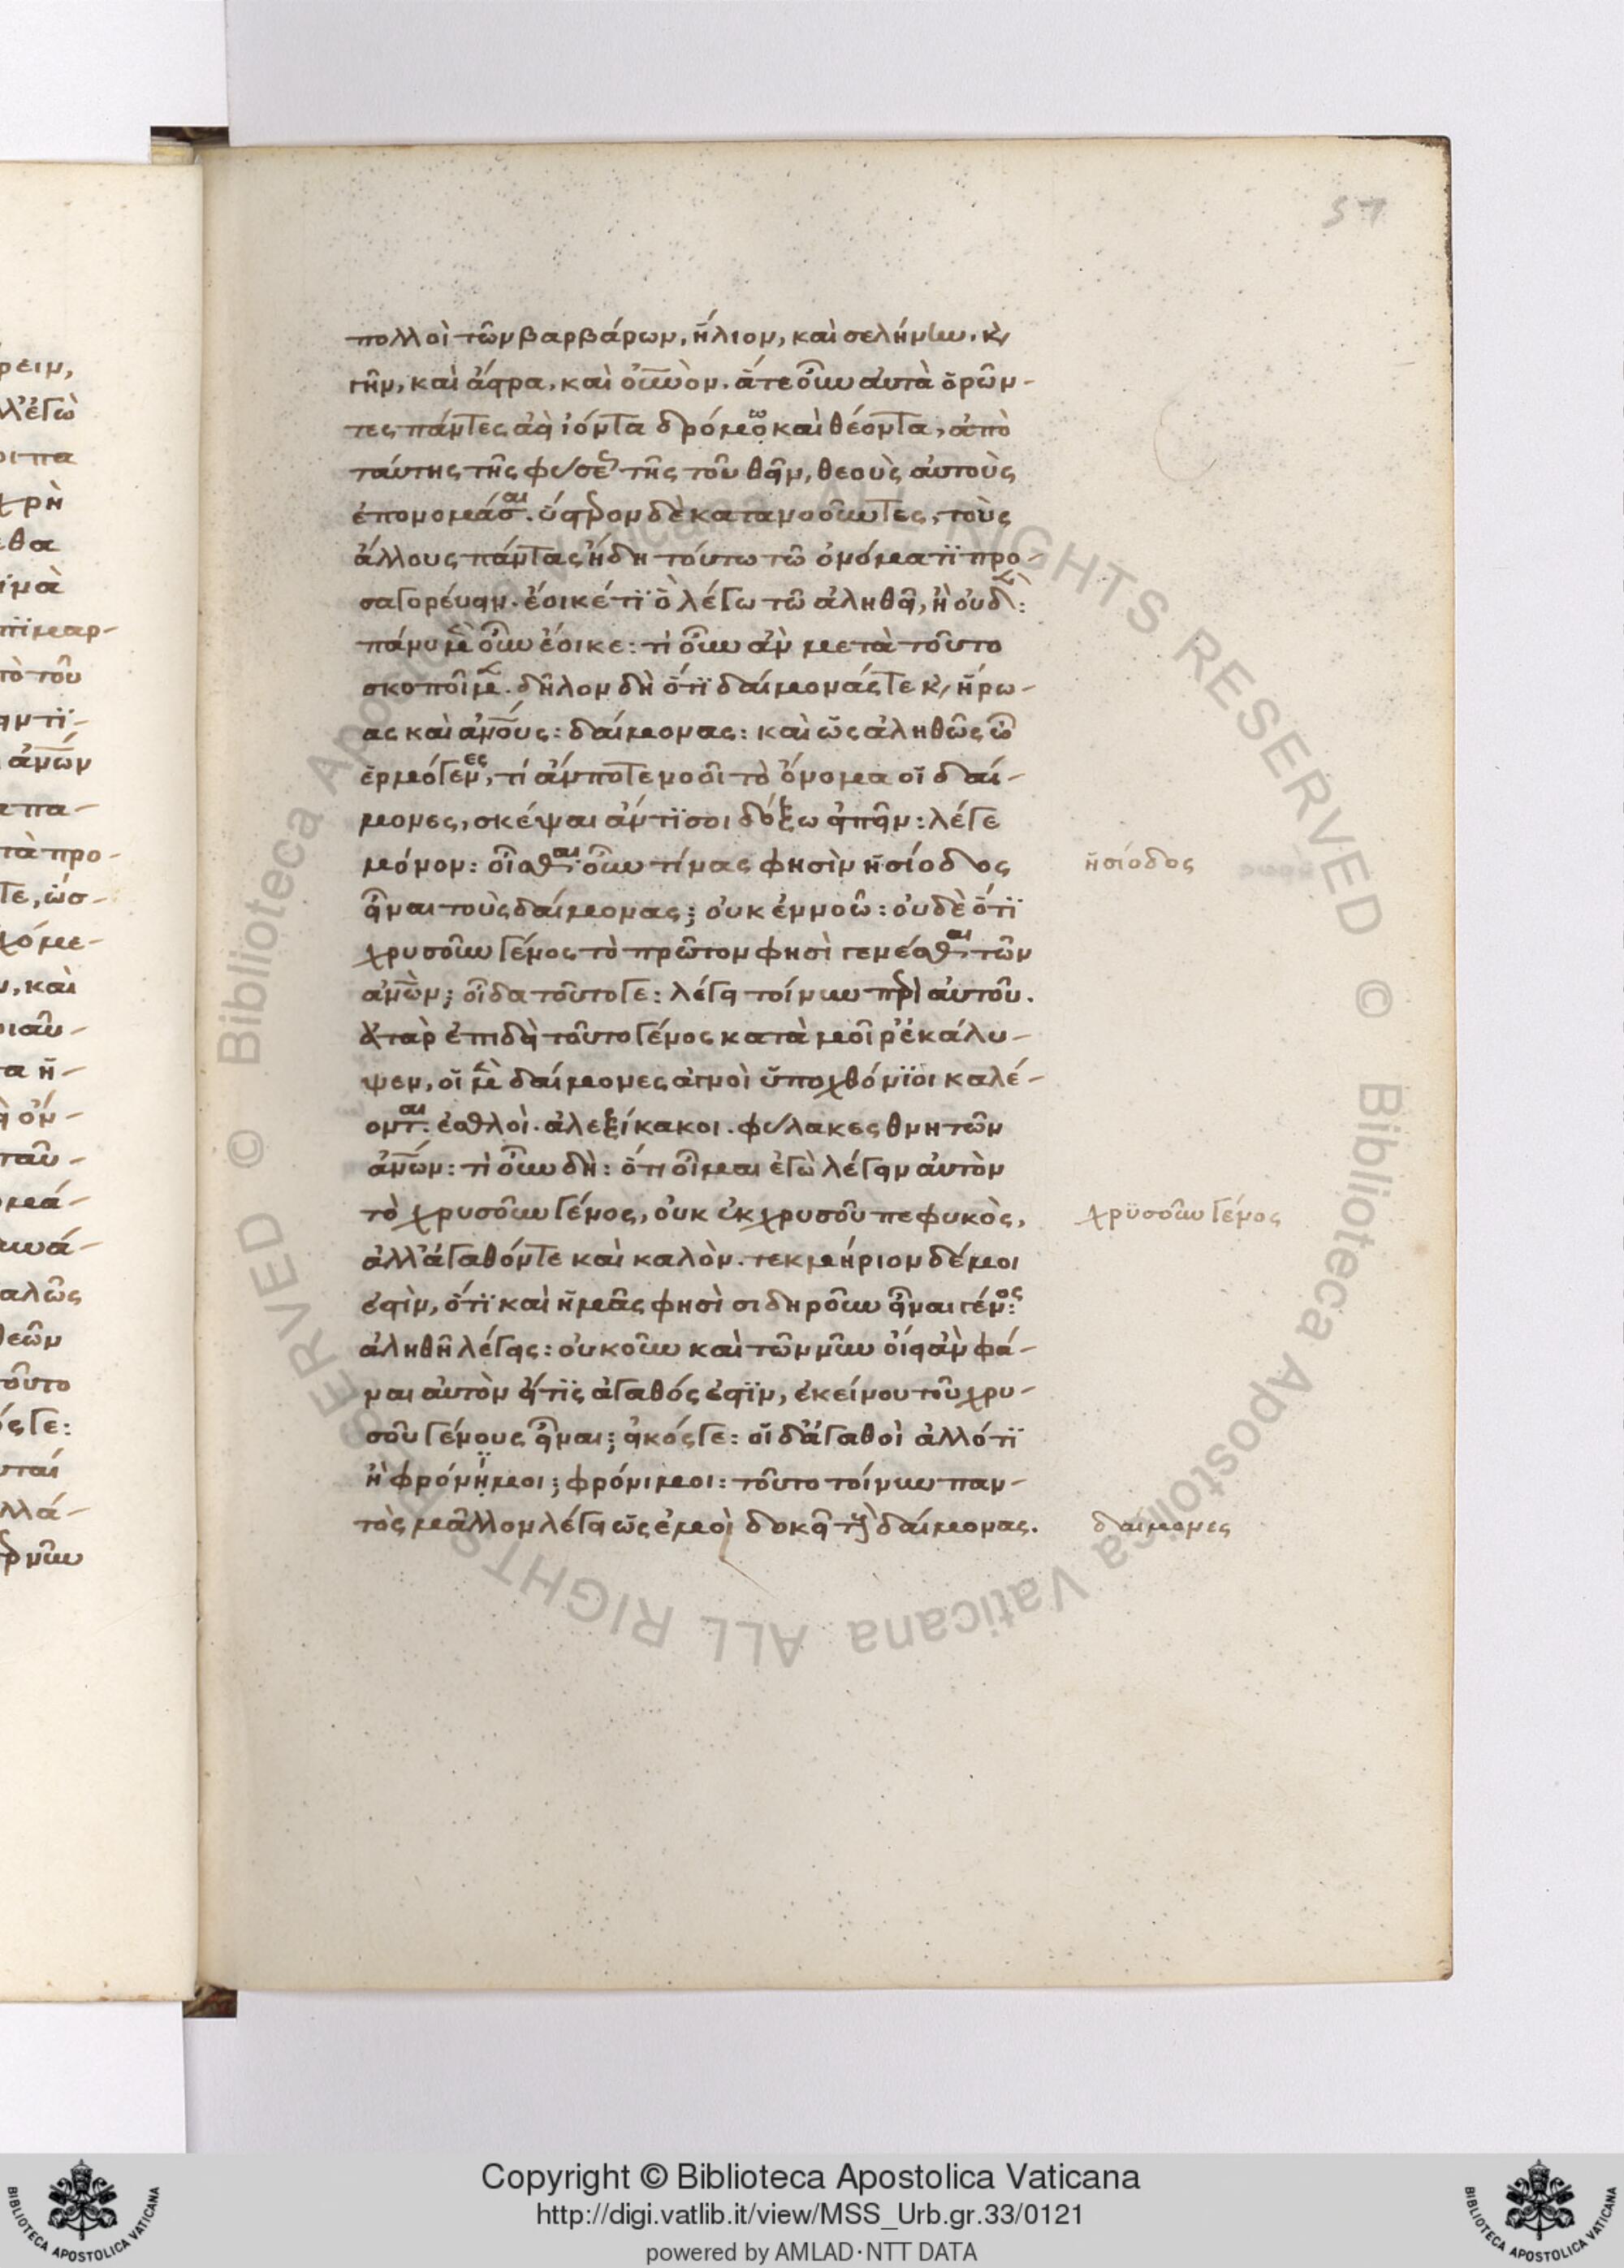 57
πολλοὶ τῶν βαρβάρων, ἥλιον, καὶ σελήνην, κ,
γῆν, καὶ ἄστρα, καὶ οὐνὸν. ἅτε οὖν αὐτὰ ὁρῶν-
τες πάντες ἀεὶ ἰόντα δρόμῳ καὶ θέοντα, ἀπὸ
ταύτης τῆς φύσεως τῆς τοῦ θεῖν, θεοὺς αὐτοὺς
ἐπονομάσαι. ὕστερον δὲ κατανοοῦντες, τοὺς
ἄλλους πάντας ἤδη τούτω τῶ ὀνόματι προ-
σαγορεύειν. ἔοικέ τι ὃ λέγω τῶ ἀληθεῖ, ἢ οὐδέν:
πάνυ μὲν οὖν ἔοικε: τί οὖν ἂν μετὰ τοῦτο
σκοποῖμεν. δῆλον δὴ ὅτι δαίμονάς τε κ, ἥρω-
ας καὶ ἀνους: δαίμονας: καὶ ὡς ἀληθῶς ὦ
ἑρμόγενες, τί ἄν ποτε νοοῖ τὸ ὄνομα οἱ δαί-
μονες, σκέψαι ἄν τι σοι δόξω εἰπεῖν: λέγε
μόνον: οἶσθαι οὖν τίνας φησὶν ἡσίοδος
εἶναι τοὺς δαίμονας; οὐκ ἐννοῶ: οὐδὲ ὅτι
χρυσοῦν γένος τὸ πρῶτον φησὶ γενέσθαι τῶν
ἀνῶν; οἶδα τοῦτο γε: λέγει τοίνυν περὶ αὐτοῦ.
ἀτὰρ ἐπειδὴ τοῦτο γένος κατὰ μοῖρ ἐκάλυ-
ψεν, οἱ μὲν δαίμονες ἁγνοὶ ὑποχθόνιοι καλέ-
ονται. ἐσθλοὶ. ἀλεξίκακοι. φύλακες θνητῶν
ἀνων: τί οὖν δὴ: ὅτι οἶμαι ἐγὼ λέγειν αὐτὸν
τὸ χρυσοῦν γένος, οὐκ ἐκ χρυσοῦ πεφυκὸς,
ἀλλ' ἀγαθόν τε καὶ καλὸν. τεκμήριον δέ μοι
ἐστὶν, ὅτι καὶ ἡμᾶς φησὶ σιδηροῦν εἶναι γένος:
ἀληθῆ λέγεις: οὐκοῦν καὶ τῶν νῦν οἴει ἂν φά-
ναι αὐτὸν εἴ τις ἀγαθός ἐστιν, ἐκείνου τοῦ χρυ-
σοῦ γένους εἶναι; εἰκός γε: οἱ δ' ἀγαθοὶ ἄλλό τι
ἢ φρόνιμοι; φρόνιμοι: τοῦτο τοίνυν παν-
τὸς μᾶλλον λέγει ὡς ἐμοὶ δοκεῖ τοὺς δαίμονας.
ἡσίοδος
χρυσοῦν γένος
δαίμονες
ρειν,
λ' ἐγὼ
οι πα
χρὴ
Copyright © Biblioteca Apostolica Vaticana
http://digi.vatlib.it/view/MSS_Urb.gr.33/0121
powered by AMLAD·NTT DATA
BIBLIOTECA APOSTOLICA VATICANA
BIBLIOTECA APOSTOLICA VATICANA
© Biblioteca Apostolica Vaticana ALL RIGHTS RESERVED
© Biblioteca Apostolica Vaticana ALL RIGHTS RESERVED